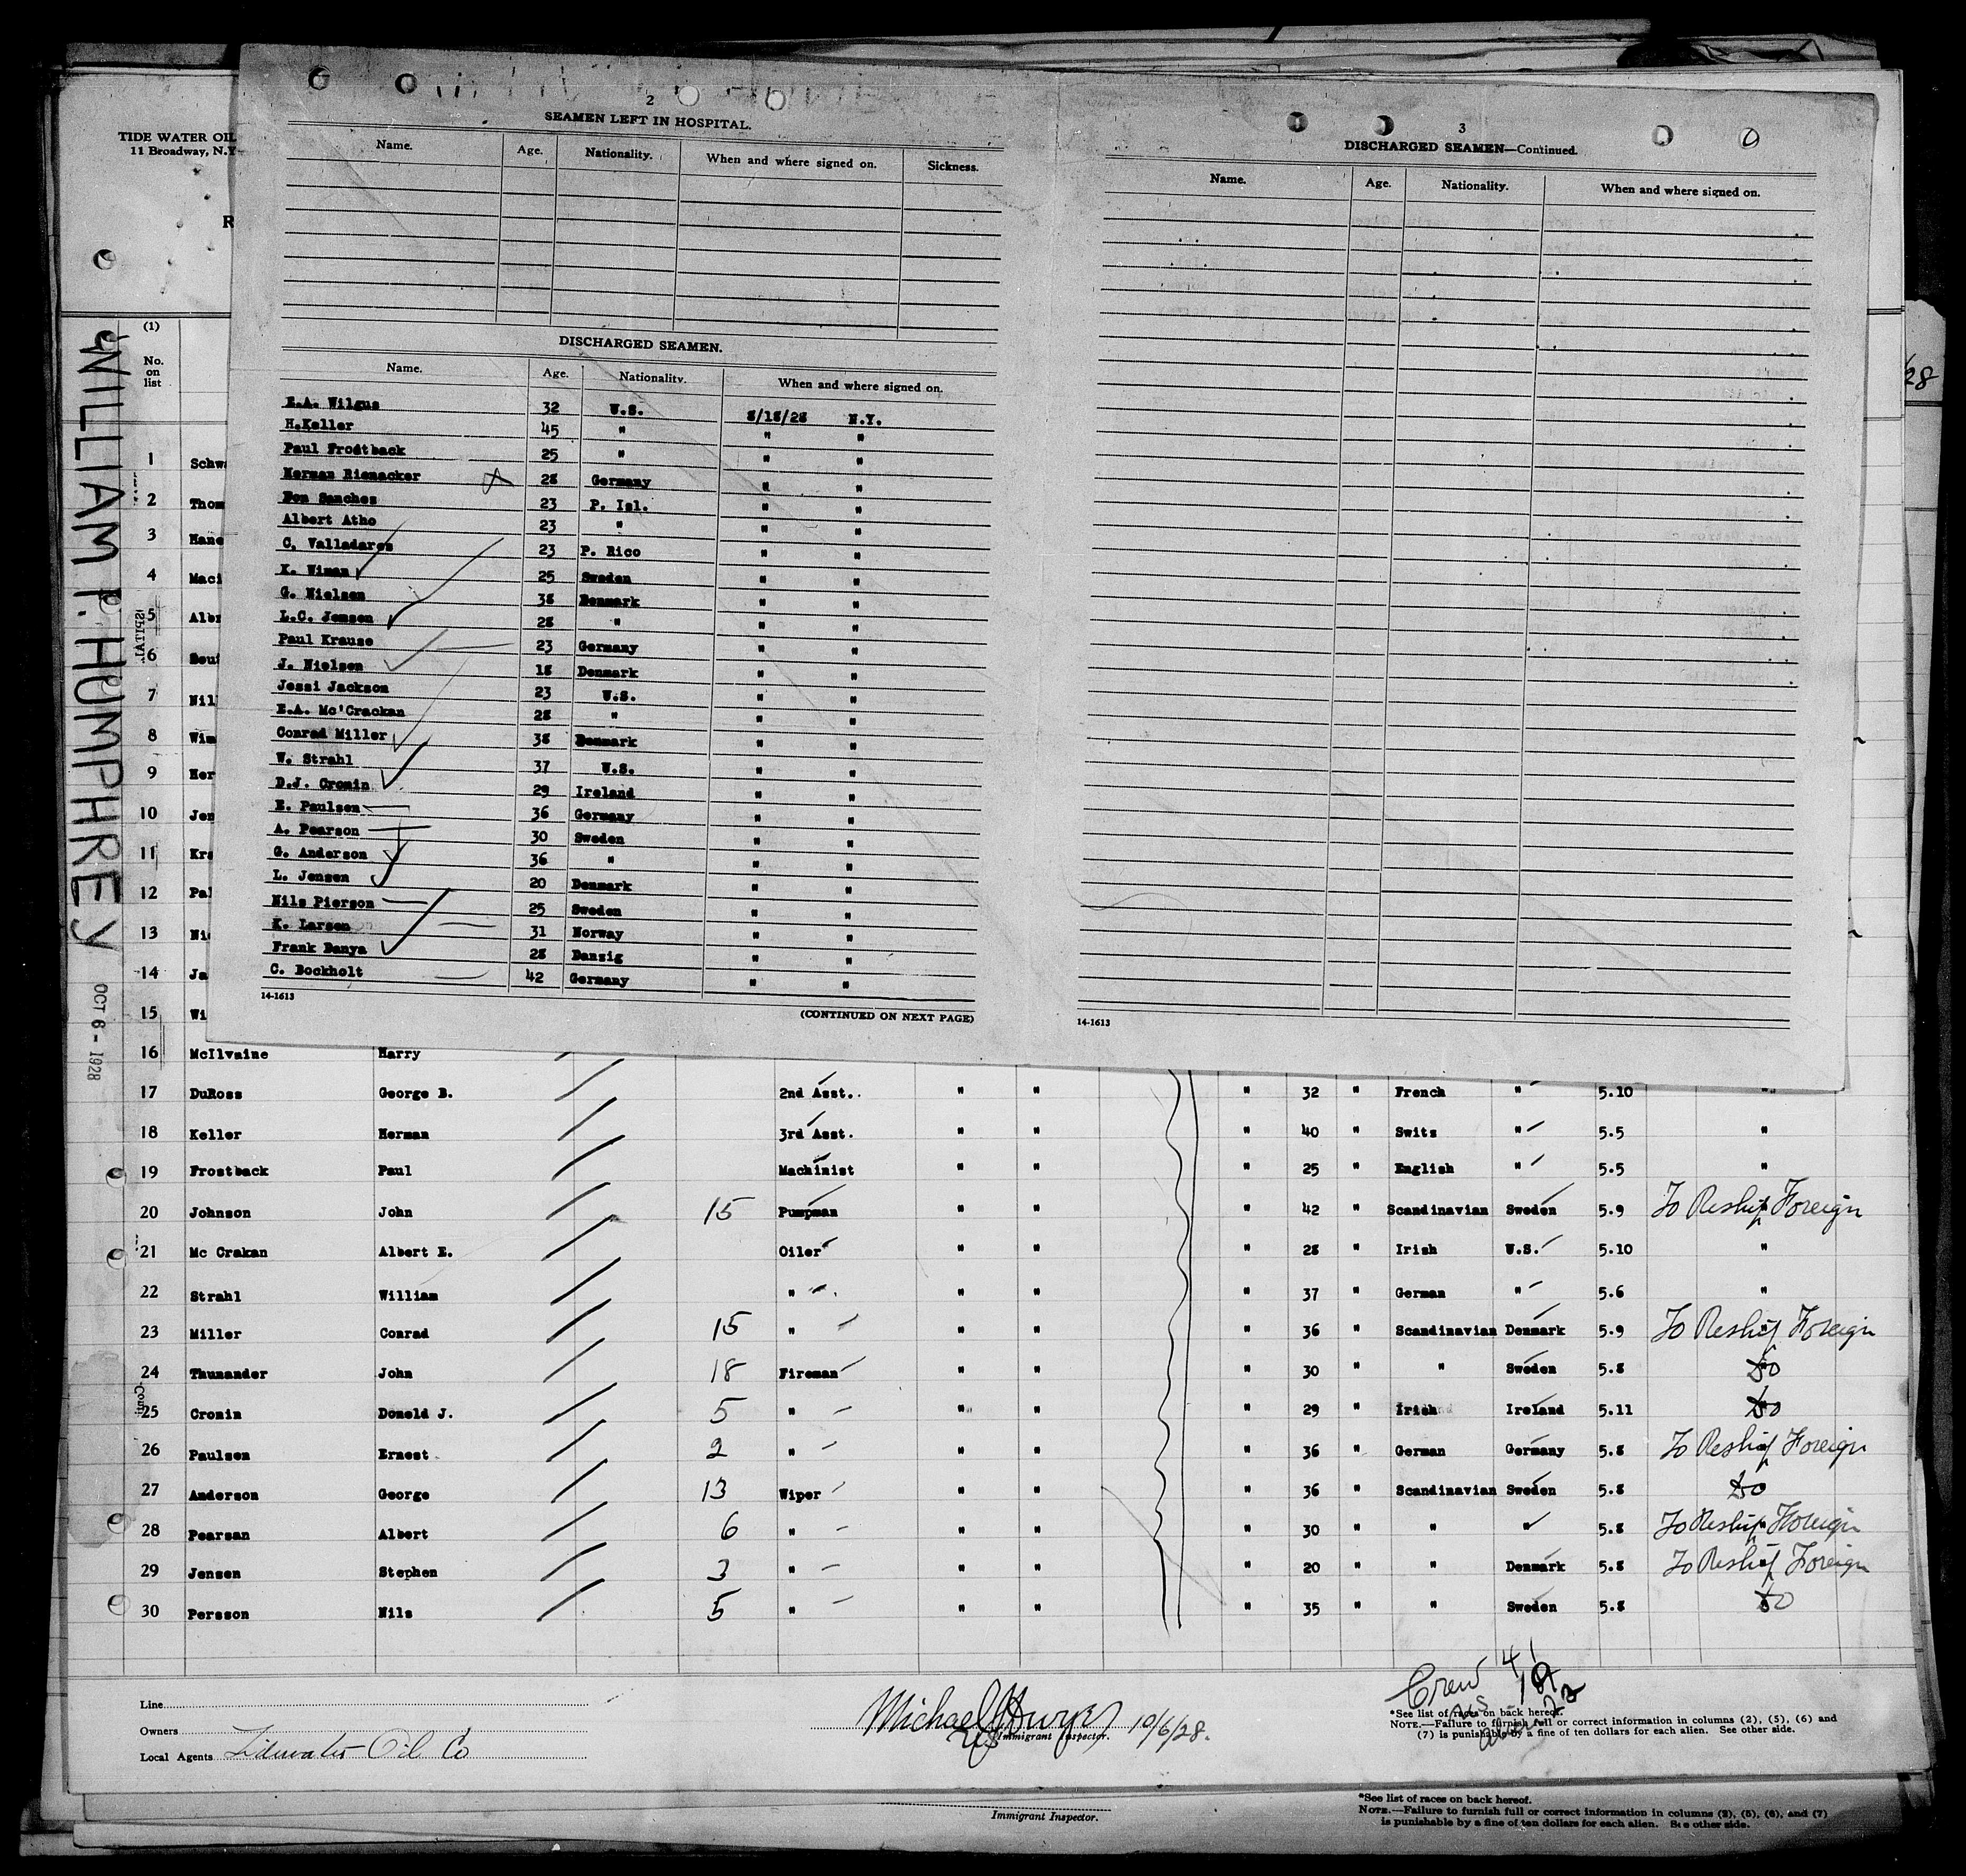 TIDE WATER OIL
11 Broadway, N.Y
R
WILLIAM F. HUMPHREY
OCT 6 - 1928
28
2
SEAMEN LEFT IN HOSPITAL.
Name. Age. Nationality. When and where signed on. Sickness.
DISCHARGED SEAMEN.
Name. Age. Nationality. When and where signed on.
E.A. Wilgus 32 U.S. 8/18/28 N.Y.
H.Keller 45 " " "
Paul Frostback 25 " " "
Herman Rienacker 28 Germany " "
Ben Sanches 23 P. Isl. " "
Albert Atho 23 " " "
C. Valladares 23 P. Rico " "
K. Wiman 25 Sweden " "
G. Nielsen 38 Denmark " "
L.C. Jensen 28 " " "
Paul Krause 23 Germany " "
J. Nielsen 18 Denmark " "
Jessi Jackson 23 U.S. " "
E.A. Mc'Crackan 28 " " "
Conrad Miller 38 Denmark " "
W. Strahl 37 U.S. " "
D.J. Cronin 29 Ireland " "
E. Paulsen 36 Germany " "
A. Pearson 30 Sweden " "
G. Anderson 36 " " "
L. Jensen 20 Denmark " "
Nils Pierson 25 Sweden " "
K. Larsen 31 Norway " "
Frank Danya 28 Danzig " "
C. Bockholt 42 Germany " "
14-1613
(CONTINUED ON NEXT PAGE)
3
DISCHARGED SEAMEN—Continued.
Name. Age. Nationality. When and where signed on.
14-1613
(1)
No.
on
list
1 Schw
2 Thom
3 Hane
4 Maci
5 Albr
6
7 Nil
8 Wim
9 Her
10 Jen
11 Kra
12 Pal
13 Nie
14 Ja
15 Wi
16 McIlvaine Harry
17 DuRoss George B. 2nd Asst. " " " 32 " French " 5.10 "
18 Keller Herman 3rd Asst. " " " 40 " Switz " 5.5 "
19 Frostback Paul Machinist " " " 25 " English " 5.5 "
20 Johnson John 15 Pumpman " " " 42 " Scandinavian Sweden 5.9 To Reship Foreign
21 Mc Crakan Albert E. Oiler " " " 28 " Irish U.S. 5.10 "
22 Strahl William " " " " 37 " German " 5.6 "
23 Miller Conrad 15 " " " " 36 " Scandinavian Denmark 5.9 To Reship Foreign
24 Thunander John 18 Fireman " " " 30 " " Sweden 5.8 do
25 Cronin Donald J. 5 " " " " 29 " Irish Ireland 5.11 do
26 Paulsen Ernest 2 " " " " 36 " German Germany 5.8 To Reship Foreign
27 Anderson George 13 Wiper " " " 36 " Scandinavian Sweden 5.8 do
28 Pearsan Albert 6 " " " " 30 " " " 5.8 To Reship Foreign
29 Jensen Stephen 3 " " " " 20 " " Denmark 5.8 To Reship Foreign
30 Persson Nils 5 " " " " 35 " " Sweden 5.8 do
Crew 41
Line
Owners
Local Agents Tidewater Oil Co
Michael 10/6/28.
Immigrant Inspector.
*See list of races on back hereof.
NOTE.—Failure to furnish full or correct information in columns (2), (5), (6) and
(7) is punishable by a fine of ten dollars for each alien. See other side.
Immigrant Inspector.
*See list of races on back hereof.
NOTE.—Failure to furnish full or correct information in columns (2), (5), (6), and (7)
is punishable by a fine of ten dollars for each alien. See other side.